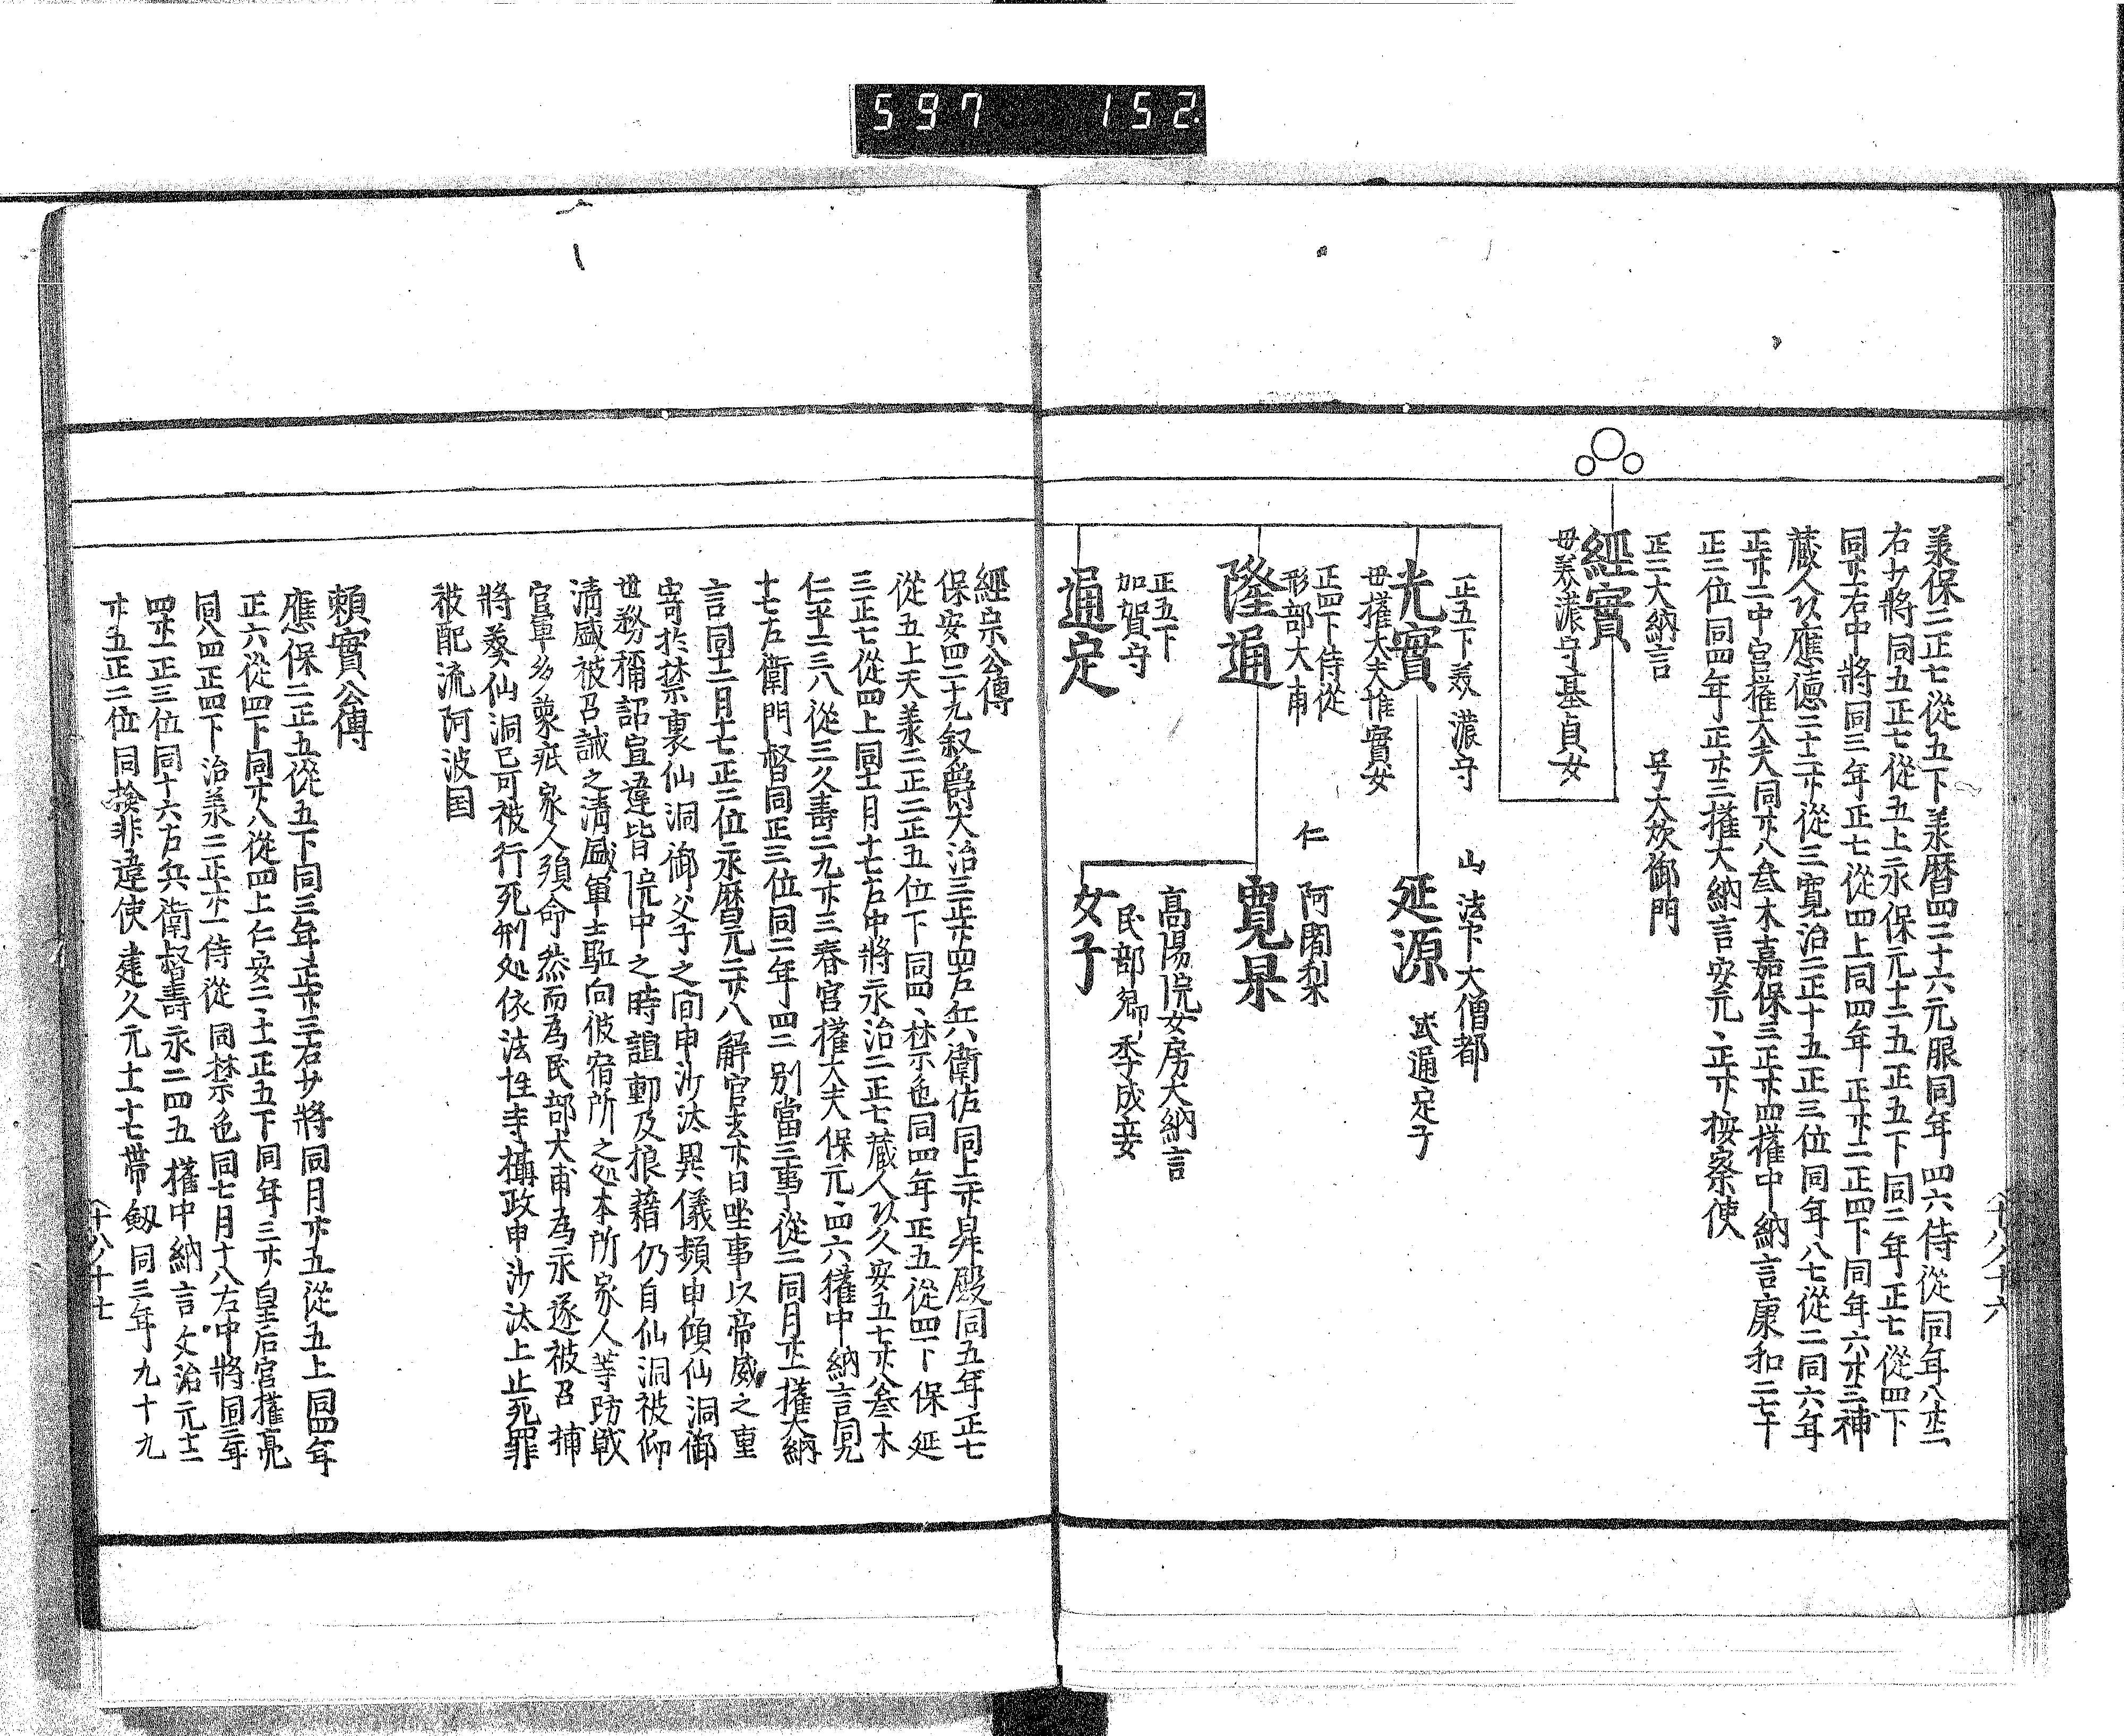 597 152.
八十八ノ十六
義保二正七從五下義暦四二十六元服同年四六侍從同年八廿二
右少將同五正七從五上永保元十二五正五下同二年正七從四下
同廿五右中將同三年正七從四上同四年正廿二正四下同年六廿三補
藏人以應德三十二廿從三寛治二正十五正三位同年八七從二同六年
正廿二中宮權大夫同廿八叅木嘉保三正廿四權中納言康和二七十
正二位同四年正廿三權大納言安元、正廿按察使
正二大納言 号大炊御門
經實
母美濃守基貞女
正五下美濃守
光實
母權大夫惟實女
山 法下大僧都
延源 武通定子
正四下侍從
形部大甫
隆通
仁 阿闍梨
寛杲
高陽院女房大納言
民部卿季成妾
女子
正五下
加賀守
通定
經宗公傳
保安四二十九叙爵大治三正廿四右兵衛佐同上廿昇殿同五年正七
從五上天義二正二正五位下同四、禁色同四年正五從四下保延
三正七從四上同十二月十七右中將永治二正七藏人以久安五七廿八叅木
仁平二三八從三久壽二九廿三春宮權大夫保元、四六權中納言同九
十七右衛門督同正三位同二年四二別當三事從二同月廿二權大納
言同十二月十七正二位永暦元二廿八解官去廿日坐事以帝威之重
寄於禁裏仙洞御父子之間申沙汰異儀頻申傾仙洞御
世務稱詔宣違背院中之時誼動及狼藉仍自仙洞被仰
淸盛被召誡之淸盛軍士馳向彼宿所之処本所家人等防戰
官軍多蒙疵家人殞命然而為民部大甫為永遂被召捕
將參仙洞已可被行死刑処依法性寺攝政申沙汰上止死罪
被配流阿波国
賴實公傳
應保二正五從五下同三年正廿三右少將同月廿五從五上同四年
正六從四下同廿八從四上仁安二十二正五下同年三廿皇后宮權亮
同八四正四下治義二正廿一侍從同禁色同七月十八右中將同三年
四廿二正三位同十六右兵衛督壽永二四五權中納言文治元十二
廿五正二位同檢非違使建久元十二十七帶劔同三年九十九
八十八ノ十七